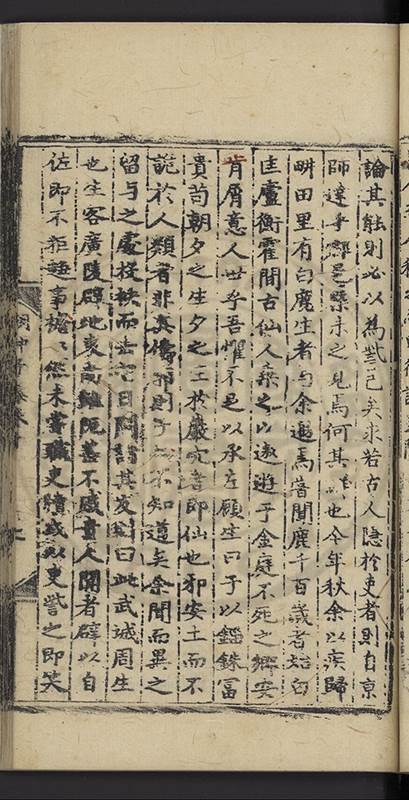 論其能則必以為訾已矣求若古人隐於吏者則自京
師達乎郡邑槩未之見焉何其也今年秋余以疾歸
畊田里有白鹿生者与余遊焉蓋聞鹿千百歲者始白
匡廬衡霍間古仙人乘之以遨遊于金庭不死之鄉安
肯屑意人世乎吾懼不足以承左顧生曰子以錙銖富
貴苟朝夕之生夕之土於巖穴者即仙也邪安土而不
詭於人類者非真儔邪則子不知道矣余聞而異之
留与之處投袂而去日問諸其友曰此武城周生
也生客廣陵辟地裒高雖阨甚不感貴人聞者辟以自
佐即不拒趣事然未嘗職吏牘或以吏訾之即笑